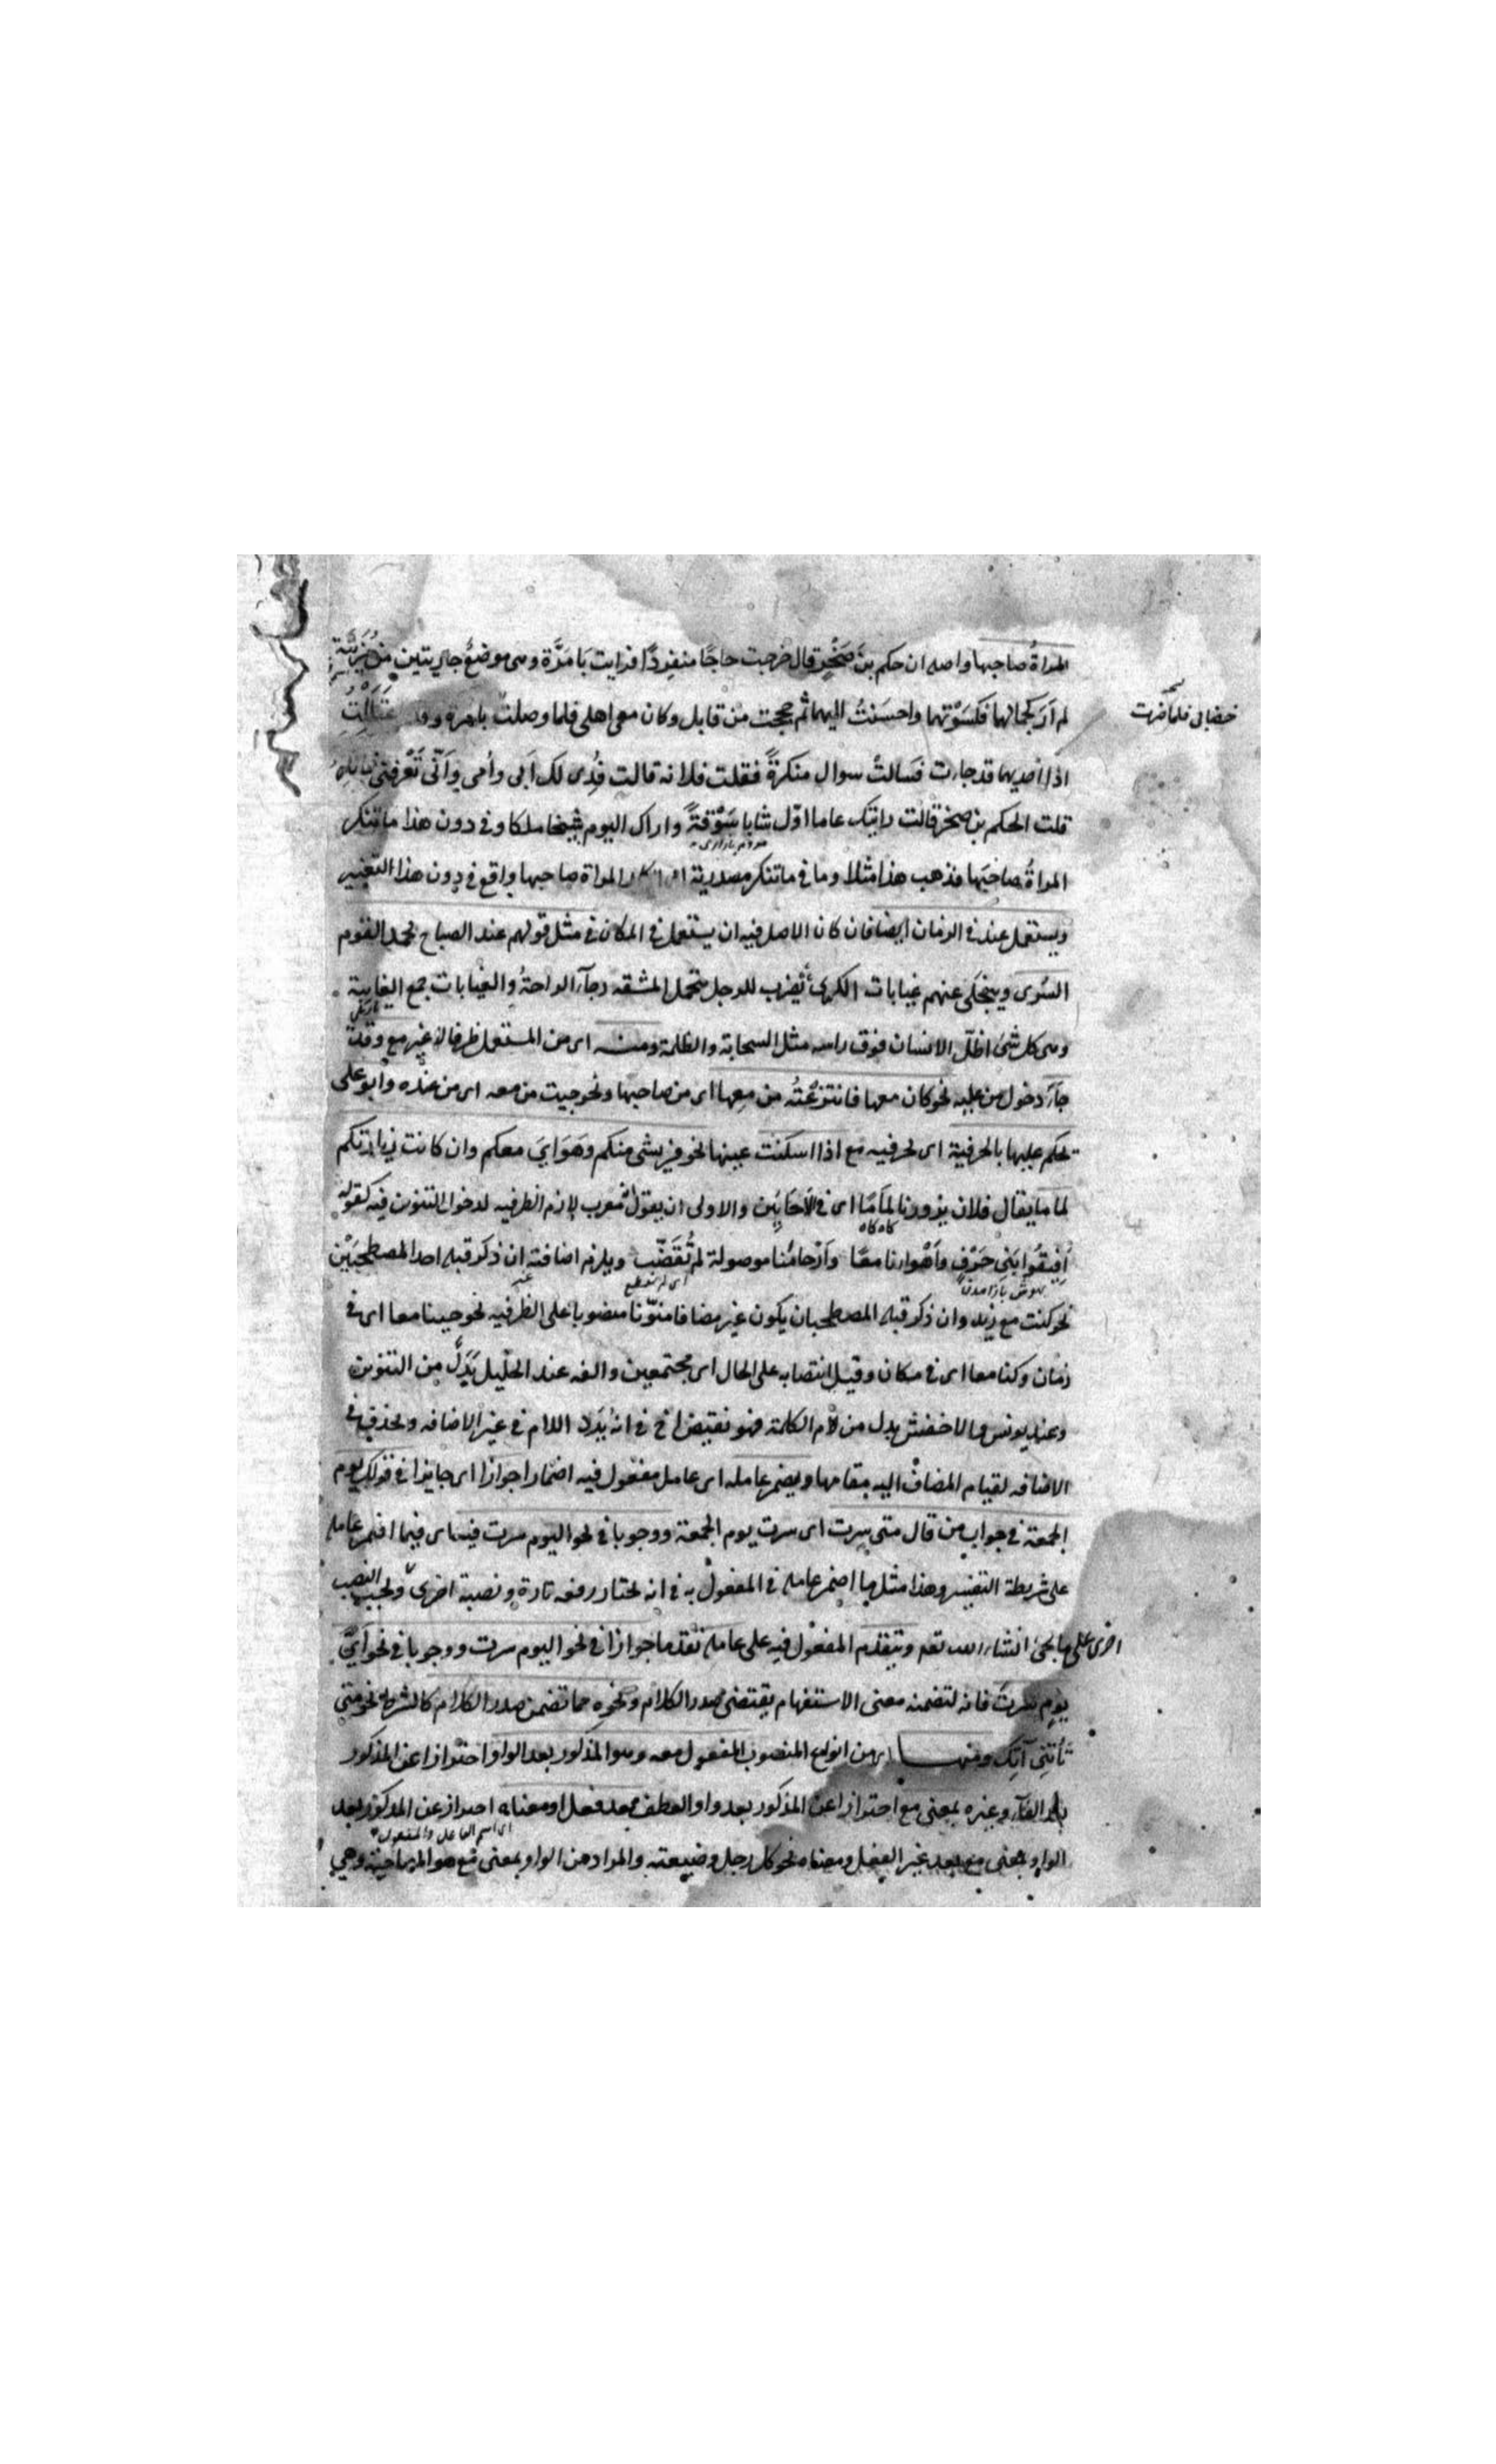 المراةُ صاحبها واصله ان حكم بنَ صَخْرٍ قال خرجت حاجًا منفردًا فرايت بَامَرَّة وهى موضعٌ جاريتين
لم اَرَ كجمالهما فكسَوْتهما واحسَنتُ اليهما ثم حججت من قابل وكان معى اهلى فلما وصلت بامرة وقد
خضابى فلما
اذا احديهما قد جارت فسالتْ سوال منكرةً فقلت فلانه قالت فُدِى لك اَبى وأمى واَنّى تَعْرفنى
قلت الحكم بن صخر قالت رايتك عاما اوّل شابا سَوْقةً واراك اليوم شيخا ملكا وفى دون هذا ما تنكر
المراةُ صاحبَها فذهب هذا مثلا وما فى ما تنكر مصدرية المراة صاحبها واقع فى دون هذا التغيير
ويستعمل عند فى الزمان ايضا فان كان الاصل فيه ان يستعمل فى المكان فى مثل قولهم عند الصباح يحمد القوم
السُرى وينجلى عنهم غيابات الكرى يُضرب للرجل يتحمل المشقه رجآء الراحةُ والغيابات جمع الغيابة
وهى كل شئ اظلّ الانسان فوق راسه مثل السحابة والظلمة ومنـه اى من المستعمل ظرفا لا غير مع وقد
جآءَ دخول من عليه نحو كان معها فانتزعْتُه من معها اى من صاحبها ونحو جيت من معه اى من عنده وابو على
يحكم عليها بالحرفية اى لحرفيه مع اذا اسكنت عينها نحو فريشى منكم وهَوَاىَ معكم وان كانت زيارتكم
لماما يقال فلان يزورنا لمَامًا اى فى الاَحَايِين والاولى ان يقول معرب لازم الظرفيه لدخول التنوين فيه كقوله
كاه كاه
اَفِيقُوا بَنى حَرْفٍ وأَهْواؤنا معًا وأَرْحامُنا موصولة لم تُقَضَّب ويلزم اضافته ان ذكر قبله احد المصطحبَيْن
نحو كنت مع زيد وان ذكر قبله المصطحبان يكون غير مضاف منوّنا منصوبا على الظرفيه نحو جينا معا اى فى
زمان وكنا معا اى فى مكان وقيل انتصابه على الحال اى مجتمعين والفه عند الخليل بَدَلٌ من التنوين
وعند يونس والاخفش بدل من لام الكلمة فهو نقيض اخ فى انه يُرَد اللام فى غير الاضافه ويحذف فى
الاضافه لقيام المضاف اليه مقامها ويضمر عامله اى عامل مفعول فيه اضمارا جوازا اى جايزا فى قولك يوم
الجمعة فى جواب من قال متى سرت اى سرت يوم الجمعة ووجوبا فى نحو اليوم سرت فيه اى فيما اضمر عامله
على شريطة التفسير وهذا مثل ما اضمر عامله فى المفعول به فى انه يختار رفعه تارة ونصبه اخرى ويجب النصب
اخرى على ما يجئ انشاء الله تعم ويتقدم المفعول فيه على عامله تقدما جوازا فى نحو اليوم سرت ووجوبا فى نحو اىَّ
يومٍ سرت فانه لتضمنه معنى الاستفهام يقتضى صدر الكلام ونحوه مما تضمن صدر الكلام كالشرط نحو متى
تأتنِى آتِك ومنهـا اى من انواع المنصوب المفعول معه وهو المذكور بعد الواو احترازا عن المذكور
بعد الفآء وغيره بمعنى مع احترازا عن المذكور بعد واو العطف بعد فعل او معناه احتراز عن المذكور بعد
اى اسم الفاعل والمفعول
الواو بمعنى مع بعد غير الفعل ومعناه نحو كل رجل وضيعته والمراد من الواو بمعنى مع هو المصاحبة وهى